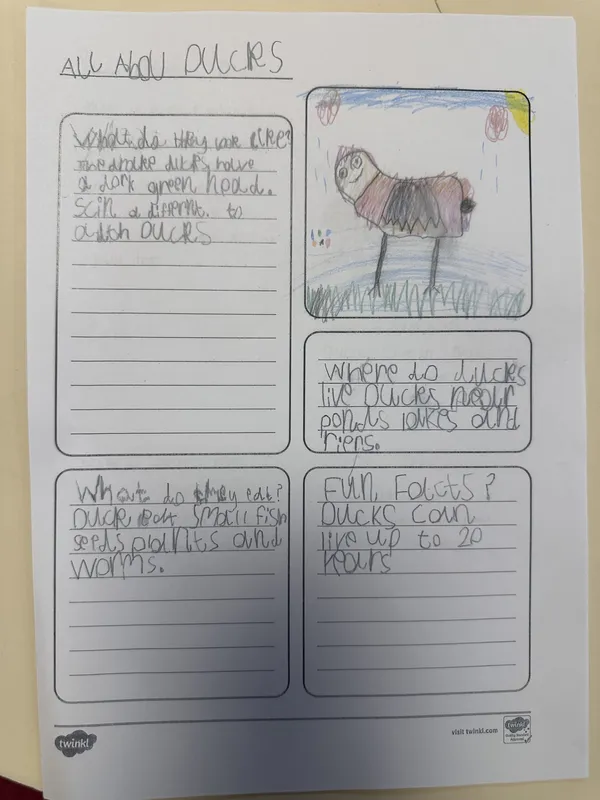 All About DUCKS
What do they look like?
The drake ducks have
a dark green head.
a different. to
DUCKS
Where do ducks
live Ducks near
ponds lakes and
What do they eat?
Duck eat small fish
seeds plants and
worms.
Fun Facts?
Ducks can
live up to 20
years
twinkl
visit twinkl.com
twinkl